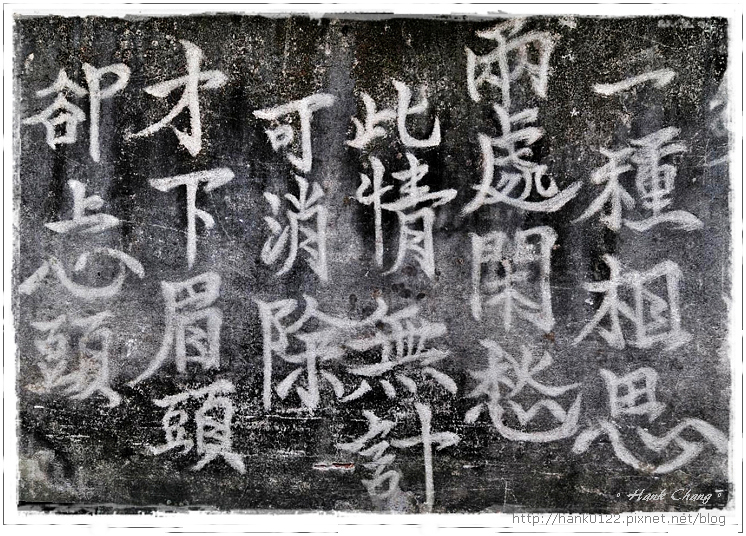 一種相思
兩處閑愁
此情無計
可消除
才下眉頭
卻上心頭
° Hank Chang °
http://hank0122.pixnet.net/blog